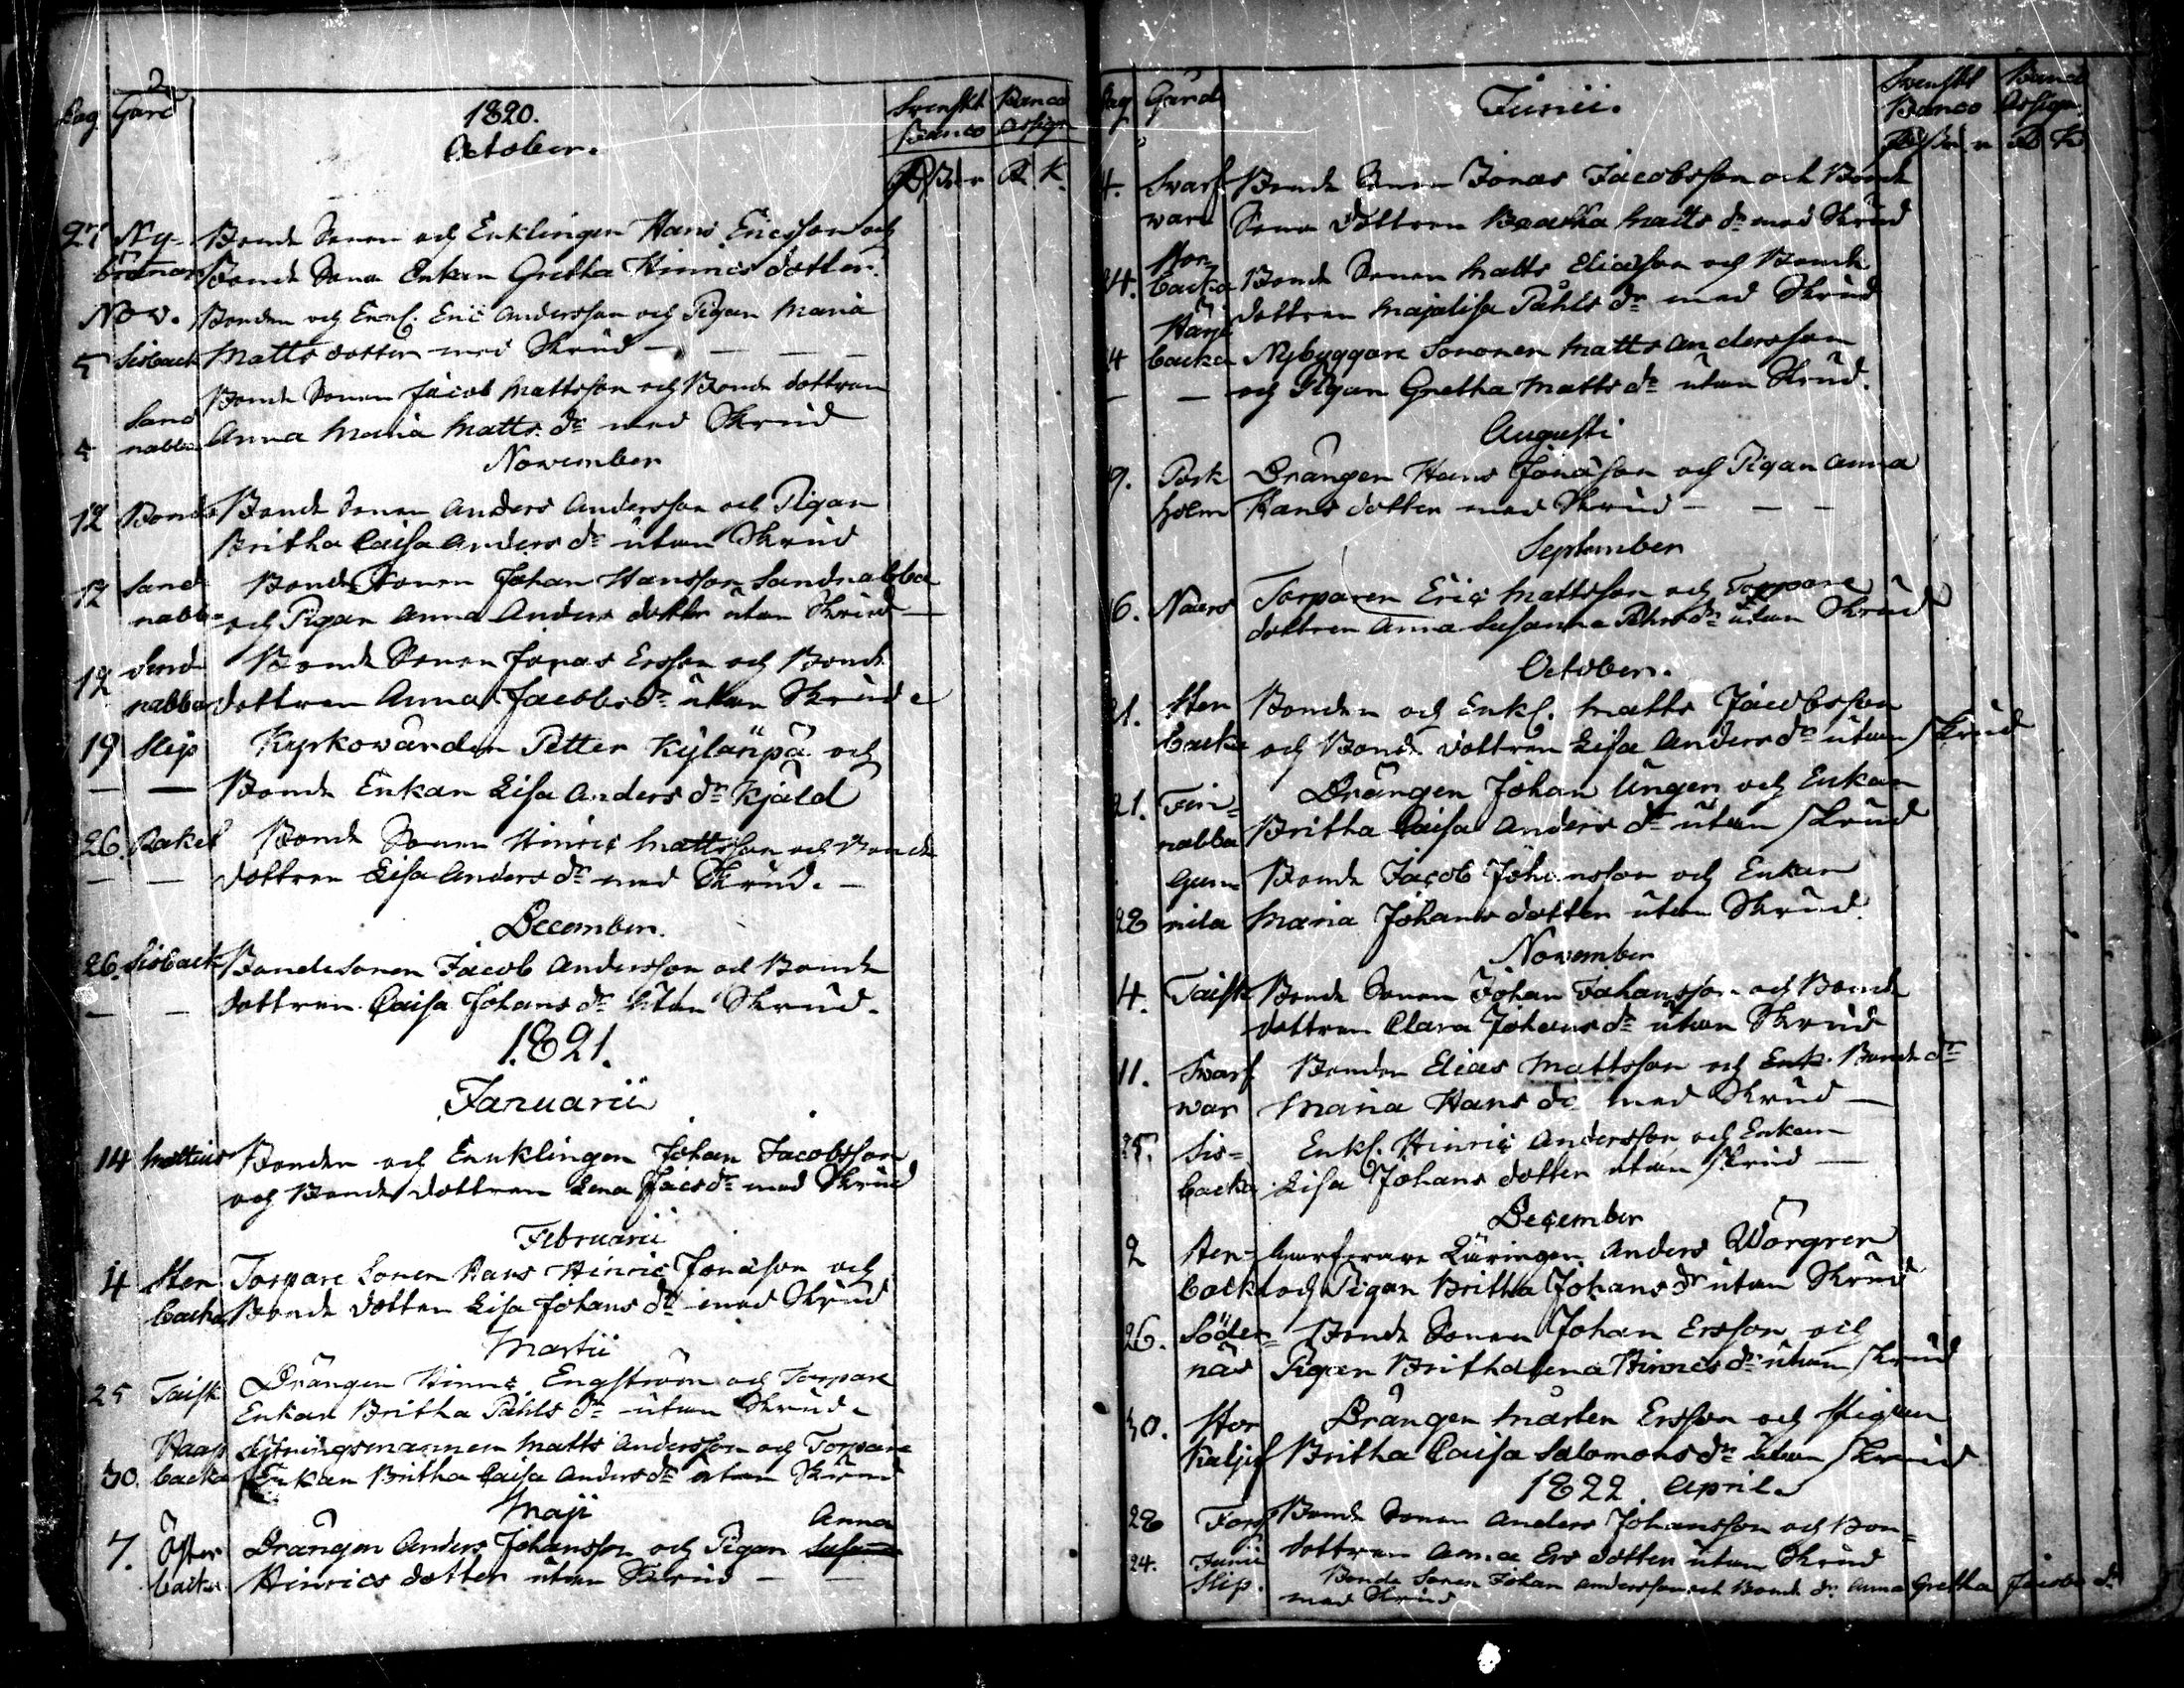 2
Dag Gård 1820. Svenskt Banco
October. Banco Assign
R K.
27 Ny- Bonde Sonen och Enklingen Hans Ericsson och
brännars Bonde Sona Enkan Gretha Hinrics dotter.
Nov. Bonden och Enkl. Eric Andersson och Pigan Maria
5 Sisback Matts dotter med Skrud — — — —
Sand Bonde Sonen Jacob Mattsson och Bonde dottren
5 nabba Anna Maria Matts dr med Skrud
November
12 Bonds Bonde Sonen Anders Andersson och Pigan
Britha Caisa Anders dr utan Skrud
12 Sand Bonde Sonen Johan Hansson Sandnabba
nabba och Pigan Anna Anders dotter utan Skrud —
12 Sand Bonde Sonen Jonas Ersson och Bonde
nabba dottren Anna Jacobs dr utan Skrud
19 Slip Kyrkovärden Petter Kylänpä och
— — Bonde Enkan Lisa Anders dr Kjäld
26. Raket Bonde Sonen Hinric Mattsson och Bonde
— — dottren Lisa Anders dr med Skrud. —
December.
26. Sisback Bonde Sonen Jacob Andersson och Bonde
— — dottren Caisa Johans dr utan Skrud.
1821.
Januarii
14 Bonden och Enuklingen Johan Jacobsson
och Bonde dottren Lena Jacs dr med Skrud
Februarii
4 Sten Torpare Sonen Hans Hinric Jonasson och
backa Bonde dotter Lisa Johans dr med Skrud
Martii
25 Taisk Drängen Hinric Engström och Torpare
Enkan Britha Påhls dr utan Skrud.
Haap Matts Andersson och Torpare
30. backa Enkan Britha Caisa Anders dr utan Skrud
Maji Anna
7. Öster Drängen Anders Johansson och Pigan Susanna
backa Hinrics dotter utan Skrud — —
Dag Gård Junii. Svenskt Banco
Banco Assign
R K
4. Svarf Bonde Sonen Jonas Jacobsson och Bonde
var Sona dottren Beatha Matts dr med Skrud
24. backa Bonde Sonen Matts Eliasson och Bonde
dottren Majalisa Påhls dr med Skrud
4 backa Nybyggare Sononen Matts Andersson
— — och Pigan Gretha Matts dr utan Skrud.
Augusti
9. Pork Drängen Hans Jonasson och Pigan Anna
holm Hans dotter med Skrud — — —
September
6. Näers Torparen Eric Mattsson och Torpare
dottren Anna Susanna Pehrs dr utan Skrud
October.
21. Sten Bonden och Enkl. Matts Jacobsson
backa och Bonde dottren Lisa Anders dr utan Skrud
21. Fin= Drängen Johan Ungen och Enkan
nabba Britha Caisa Anders dr utan Skrud
Gun Bonde Jacob Johansson och Enkan
28 nila Maria Johans dotter utan Skrud.
November
4. Taisk Bonde Sonen Johan Johansson och Bonde
dottren Clara Johans dr utan Skrud
11. Svarf Bonden Elias Mattsson och Enk. Bonde dr
var Maria Hans dr med Skrud —
25. Sis= Enkl. Hinric Andersson och Enkan
backa Lisa Johans dotter utan Skrud —
December
2 Sten= Anders Wörgren
backa och Pigan Britha Johans dr utan Skrud
26. Söder= Bonde Sonen Johan Ersson och
näs Pigan Britha Lena Hinrics dr utan Skrud
30. Stor Drängen Mårten Ersson och Pigan
Kaljif Britha Caisa Salomons dr utan Skrud
1822 April.
28 Fors Bonde Sonen Anders Johansson och Bon=
dottren Anna Ers dotter utan Skrud
24. Junii
Slip. Bonde Sonen Johan Andersson och Bonde dr Anna Gretha Jacobs dr
med Skrud